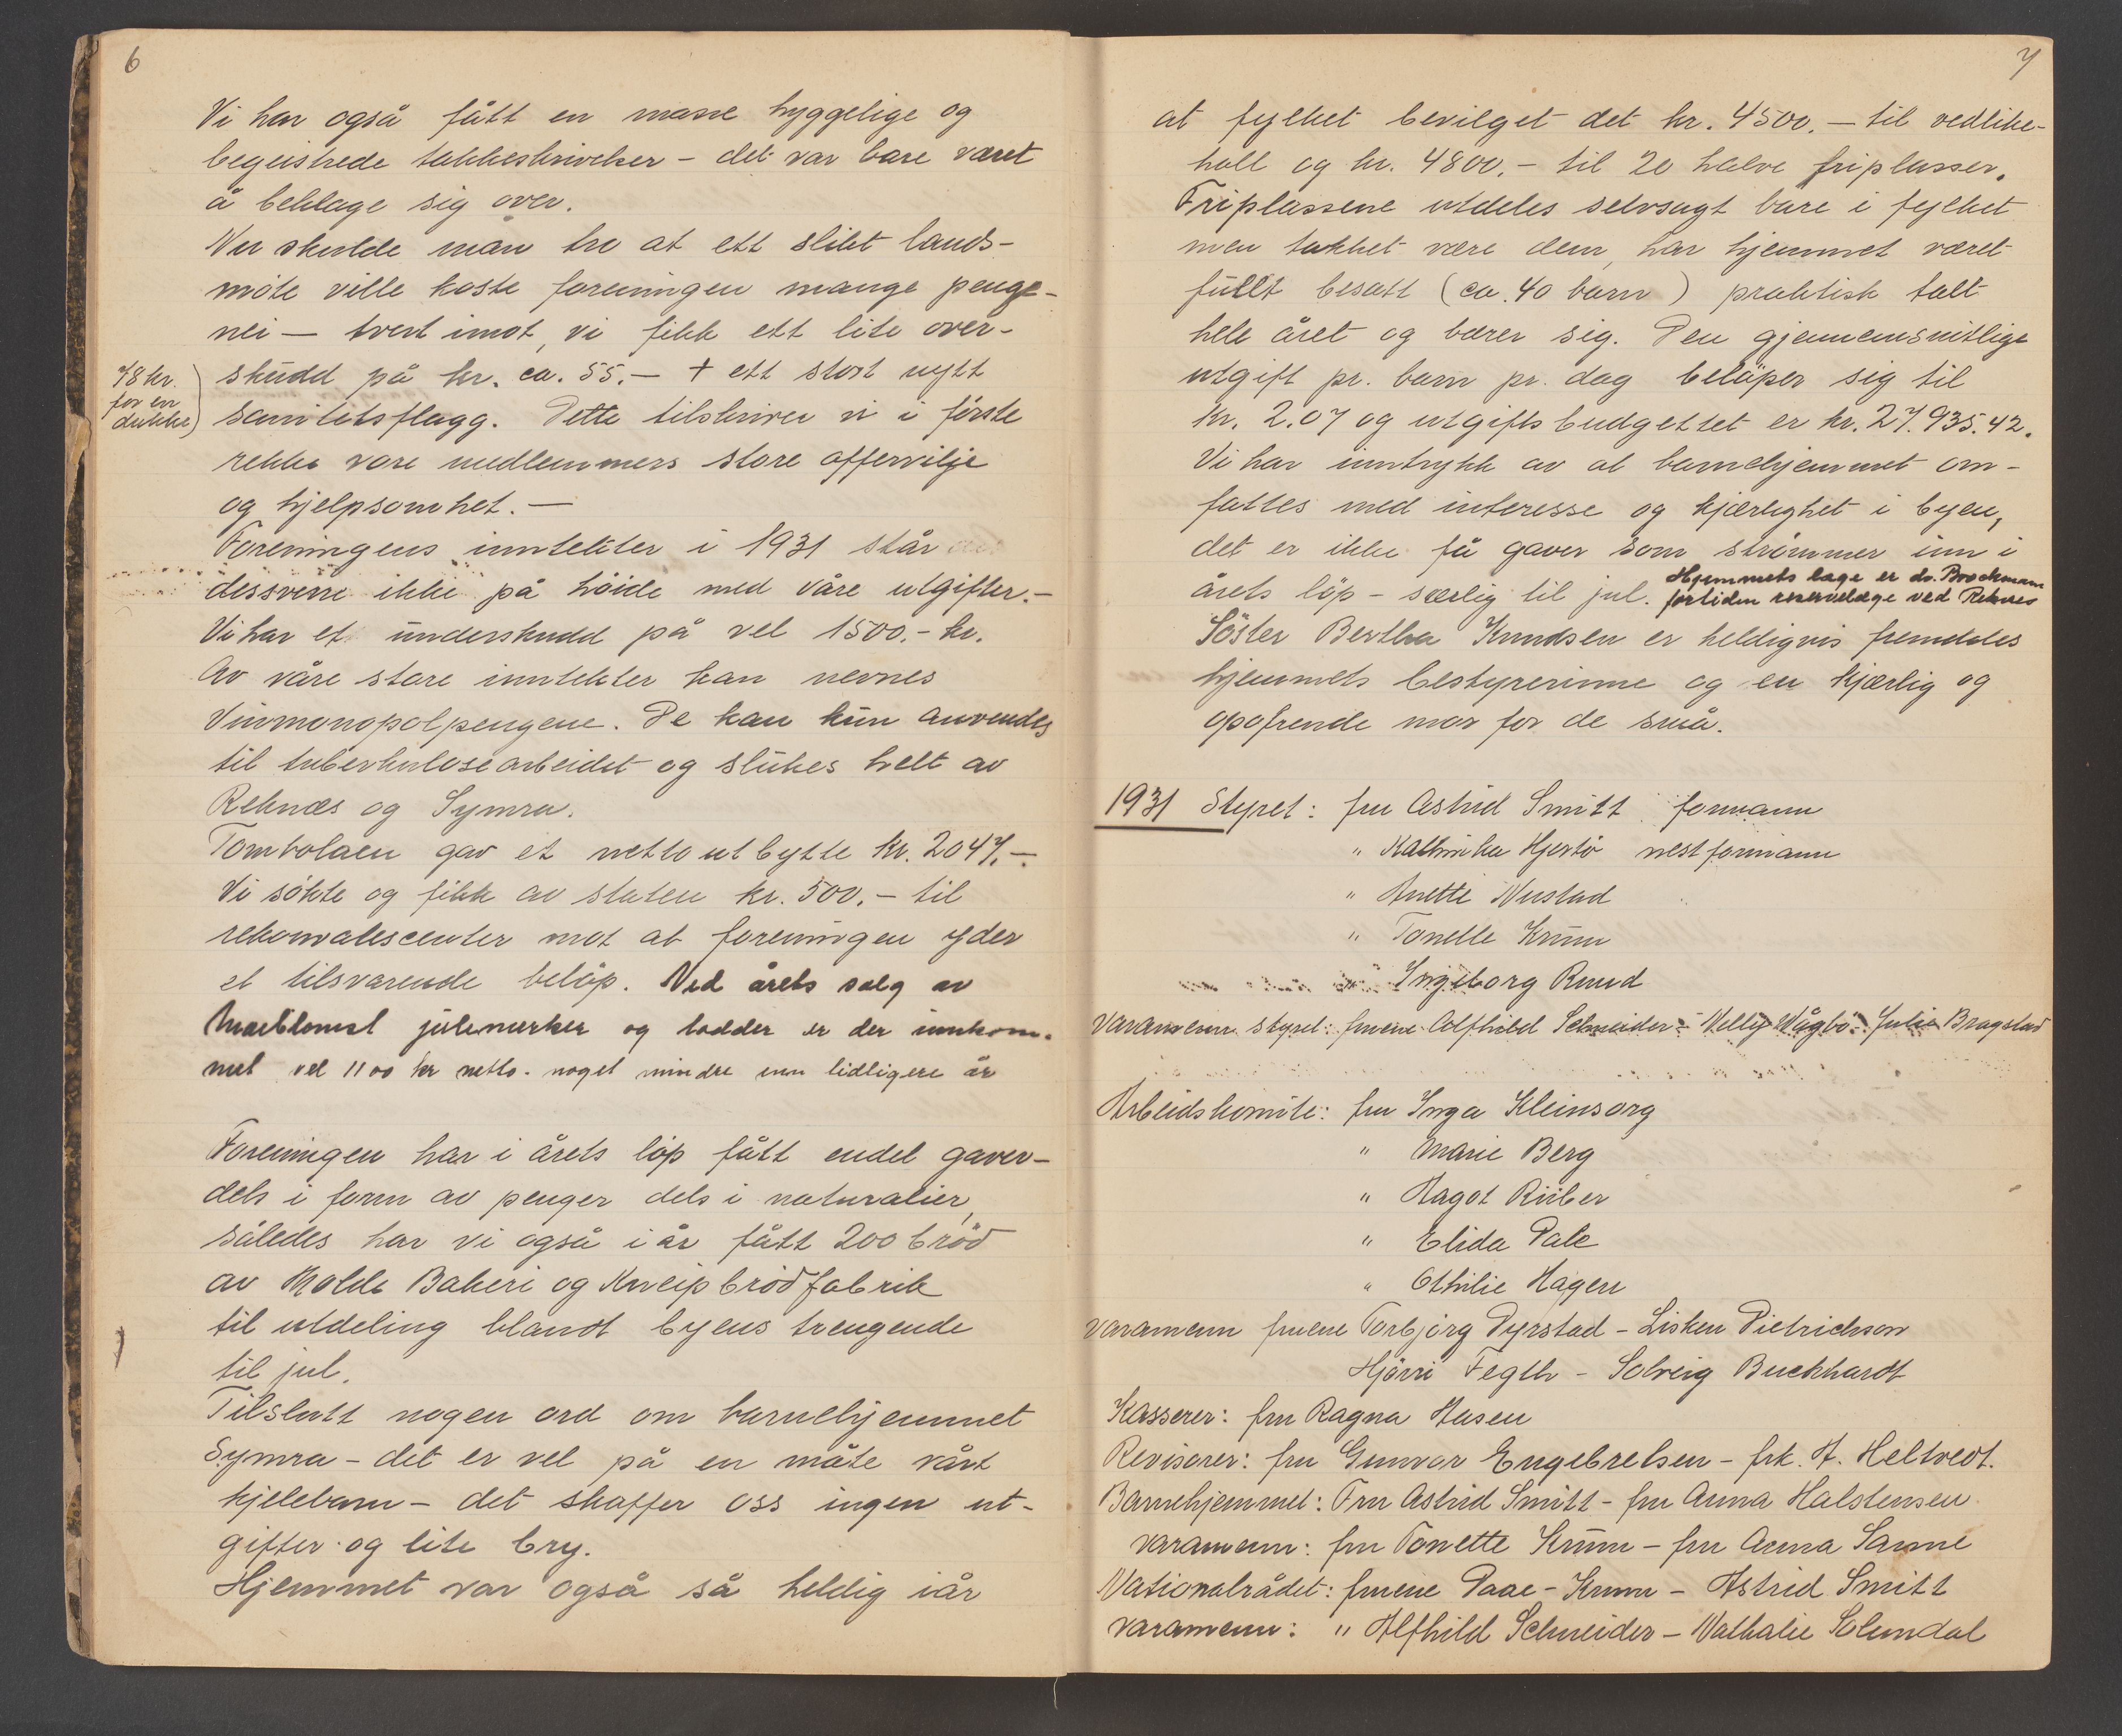 6
Vi har også fått en masse hyggelige og
begeistrede takkeskrivelser - det var bare været
å beklage sig over.
Nu skulde man tro at ett slikt lands-
möte ville koste foreningen mange penge -
nei - tvert imot, vi fikk ett lite over-
skudd på kr. ca. 55.- + ett stort nytt
78 kr.
for en
dukke)
sanitetsflagg. Dette tilskriver vi i förste
rekke vore medlemmers store offervilje
og hjelpsomhet. -
Foreningens inntekter i 1931 står
dessverre ikke på höide med våre utgifter. -
Vi har et underskudd på vel 1500.- kr.
Av våre store inntekter kan nevnes
Vinmonopolpengene. De kan kun anvendes
til tuberkulosearbeidet og slukes helt av
Reknæs og Symra.
Tombolaen gav et netto utbytte kr. 2047.-
Vi sökte og fikk av staten kr. 500.- til
rekonvalescenter mot at foreningen yder
et tilsvarende belöp. Ved årets salg av
Maiblomst julemerker og lodder er der innkom-
met vel 1100 kr netto. noget mindre enn tidligere år
Foreningen har i årets löp fått endel gaver -
dels i form av penger dels i naturalier,
således har vi også i år fått 200 bröd
av Molde Bakeri og Kneipbrödfabrik
til utdeling blandt byens trengende
til jul.
Tilslutt nogen ord om barnehjemmet
Symra - det er vel på en måte vårt
kjelebarn - det skaffer oss ingen ut-
gifter og lite bry.
Hjemmet var også så heldig iår
7
at fylket bevilget det kr. 4500.- til vedlike-
holl og kr. 4800.- til 20 halve friplasser.
Friplassene utdeles selvsagt bare i fylket
men takket være dem, har hjemmet været
fullt besatt (ca. 40 barn) praktisk talt
hele året og bærer sig. Den gjennemsnitlige
utgift pr. barn pr. dag belöper sig til
kr. 2.07 og utgiftsbudgettet er kr. 27.935.42.
Vi har inntrykk av at barnehjemmet om-
fattes med interesse og kjærlighet i byen,
det er ikke få gaver som strömmer inn i
årets löp - særlig til jul. Hjemmets læge er dr. Brockmann
fortiden reservelæge ved Reknes
Söster Bertha Knudsen er heldigvis fremdeles
hjemmets bestyrerinne og en kjærlig og
opofrende mor for de små.
1931 Styret: fru Astrid Smitt formann
" Kathinka Hjertö nestformann
" Anette Nustad
" Tonette Krum
" Ingeborg Ruud
Varamenn styret: fruene Alfhild Schneider - Nelly Vågbö - Julie Bragstad
Arbeidskomite: fru Inga Kleinsorg
" Marie Berg
" Aagot Riiber
" Elida Pale
" Othilie Hagen
Varamenn fruene Torbjörg Dyrstad - Lisken Dietrichson
Hjörri Fegth - Solveig Buckhardt
Kasserer: fru Ragna Husen
Revisorer: fru Gunvor Engebretsen - frk. A. Heltvedt.
Barnehjemmet: Fru Astrid Smitt - fru Anna Halstensen
varamenn: fru Tonette Krum - fru Anna Sanne
Nationalrådet: fruene Paae - Krum - Astrid Smitt
varamenn: " Alfhild Schneider - Nathalie Solemdal